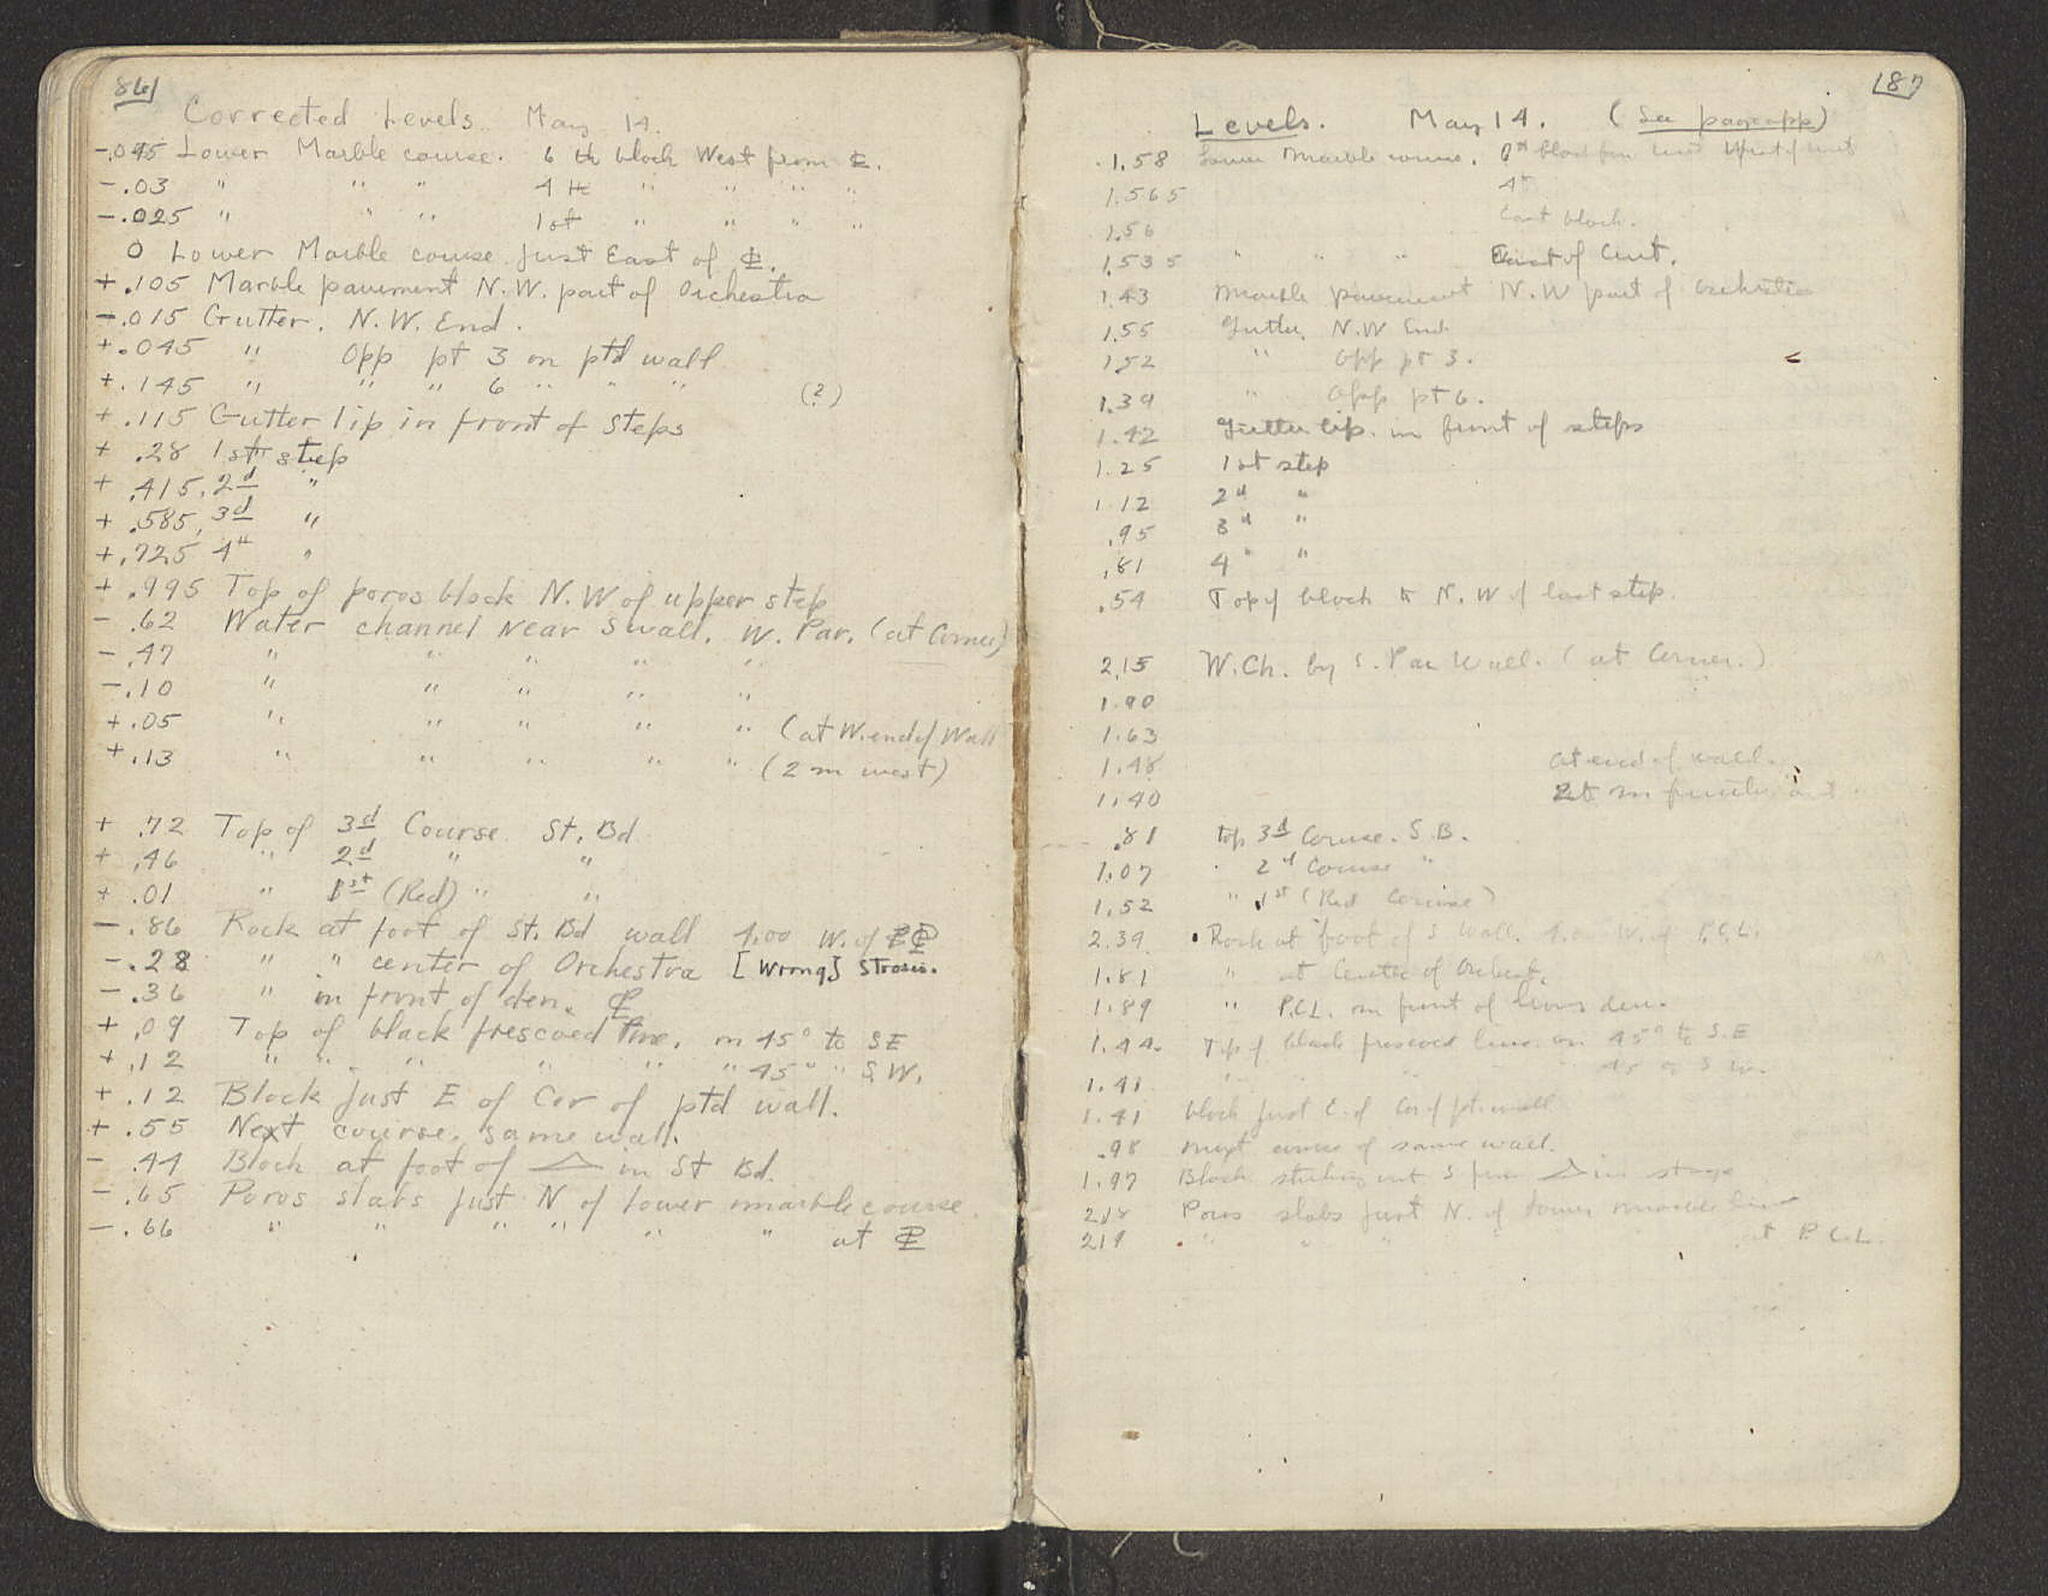 86
Corrected Levels. May 14.
-.045 Lower Marble course. 6 th block West from ℄.
-.03 " " " 4 th " " " "
-.025 " " " 1st " " " "
0 Lower Marble course just East of ℄.
+.105 Marble pavement N.W. part of Orchestra
-.015 Gutter. N.W. End.
+.045 " Opp pt 3 on ptd wall
+.145 " " " 6 " " " (?)
+.115 Gutter lip in front of steps
+.28 1st step
+.415. 2d "
+.585, 3d "
+.725 4th "
+.995 Top of poros block N.W of upper step
-.62 Water channel near S wall. W. Par. (at Corner)
-.47 " " " " "
-.10 " " " " "
+.05 " " " " " (at W. end of Wall
+.13 " " " " " (2 m west)
+.72 Top of 3d Course St. Bd
+.46 " 2d " "
+.01 " 1st (Red) " "
-.86 Rock at foot of St. Bd wall 4.00 W. of ℄
-.28 " " center of Orchestra [Wrong] Strosis.
-.36 " in front of den. ℄
+.09 Top of black frescoed line. on 45° to SE
+.12 " " " " " " 45° " S.W.
+.12 Block just E of Cor of ptd wall.
+.55 Next course. same wall.
-.44 Block at foot of △ in St Bd.
-.65 Poros slabs just N of lower marble course.
-.66 " " " " " " at ℄
87
Levels. May 14. (See page opp)
1.58 Lower Marble course. 6th block from West of Cent
1.565 4th
1.56 East block.
1.535 " " " East of Cent.
1.43 Marble pavement N.W part of Orchestra
1.55 Gutter. N.W End.
1.52 " Opp pt 3.
1.39 " Opp pt 6.
1.42 Gutter lip. in front of steps
1.25 1st step
1.12 2d "
.95 3d "
.81 4 " "
.54 Top of block to N.W of last step.
2.15 W.Ch. by S. Par Wall. (at Corner.)
1.90
1.63
1.48 at end of wall.
1.40 2 m further out.
.81 top 3d Course. S.B.
1.07 " 2d Course "
1.52 " 1st (Red Course)
2.39 Rock at foot of S wall. 4.00 W. of P.C.L.
1.81 " at Center of Orchest.
1.89 " P.C.L. in front of lions den.
1.44. Top of black frescoed line on 45° to S.E
1.41 " " " " 45 to S W.
1.41 block just E. of Cor of pt. wall
.98 next course of same wall.
1.97 Block sticking out S from △ in stage
2.18 Poros slabs just N. of lower marble line
2.19 " " " at P.C.L.